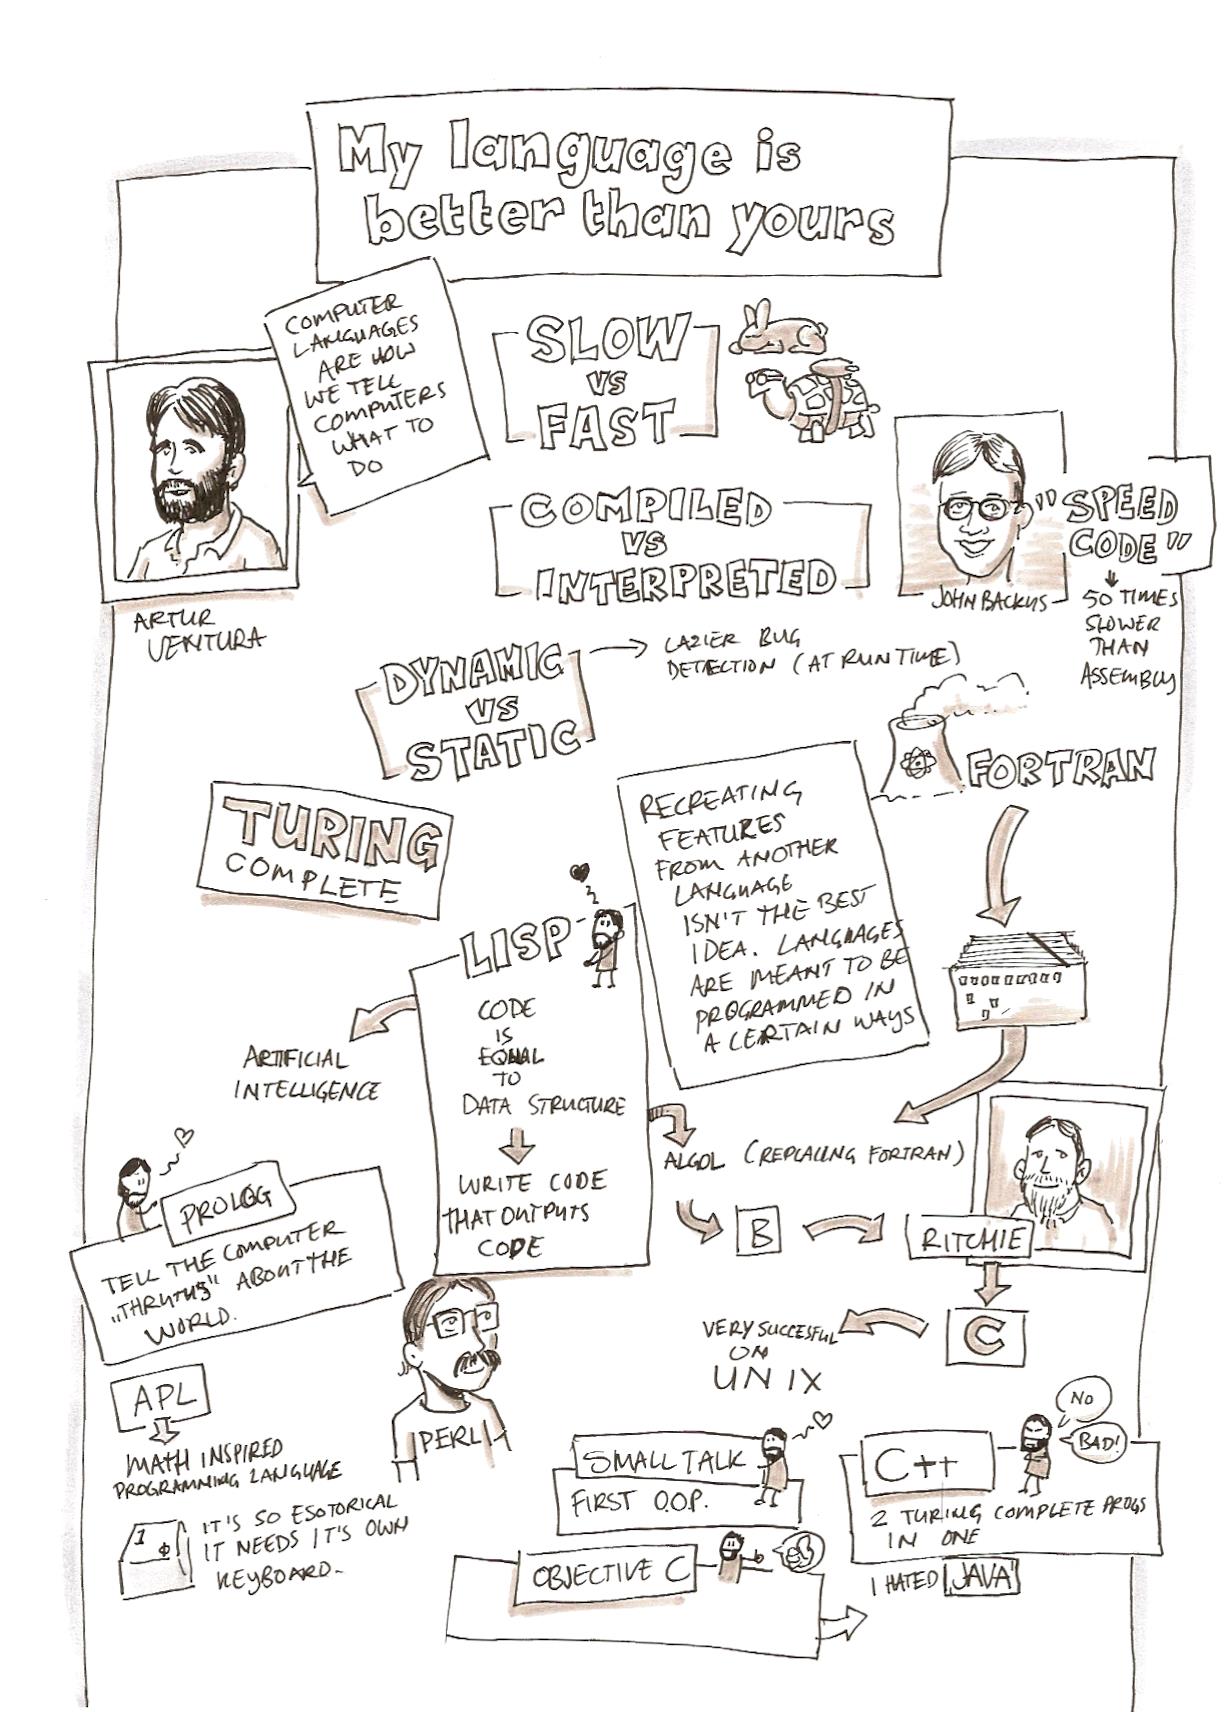 My language is
better than yours
COMPUTER
LANGUAGES
ARE HOW
WE TELL
COMPUTERS
WHAT TO
DO
ARTUR
VENTURA
SLOW
VS
FAST
COMPILED
VS
INTERPRETED
JOHN BACKUS
"SPEED
CODE"
50 TIMES
SLOWER
THAN
ASSEMBLY
DYNAMIC
VS
STATIC
LAZIER BUG
DETECTION (AT RUN TIME)
FORTRAN
TURING
COMPLETE
RECREATING
FEATURES
FROM ANOTHER
LANGUAGE
ISN'T THE BEST
IDEA. LANGUAGES
ARE MEANT TO BE
PROGRAMMED IN
A CERTAIN WAYS
LISP
CODE
IS
EQUAL
TO
DATA STRUCTURE
WRITE CODE
THAT OUTPUTS
CODE
ARTIFICIAL
INTELLIGENCE
ALGOL (REPLACING FORTRAN)
B
RITCHIE
C
VERY SUCCESFUL
ON
UNIX
PROLOG
TELL THE COMPUTER
„THRUTHS" ABOUT THE
WORLD.
APL
MATH INSPIRED
PROGRAMMING LANGUAGE
1
IT'S SO ESOTORICAL
IT NEEDS IT'S OWN
KEYBOARD.
PERL
SMALL TALK
FIRST O.O.P.
OBJECTIVE C
C++
NO
BAD!
2 TURING COMPLETE PROGS
IN ONE
I HATED JAVA